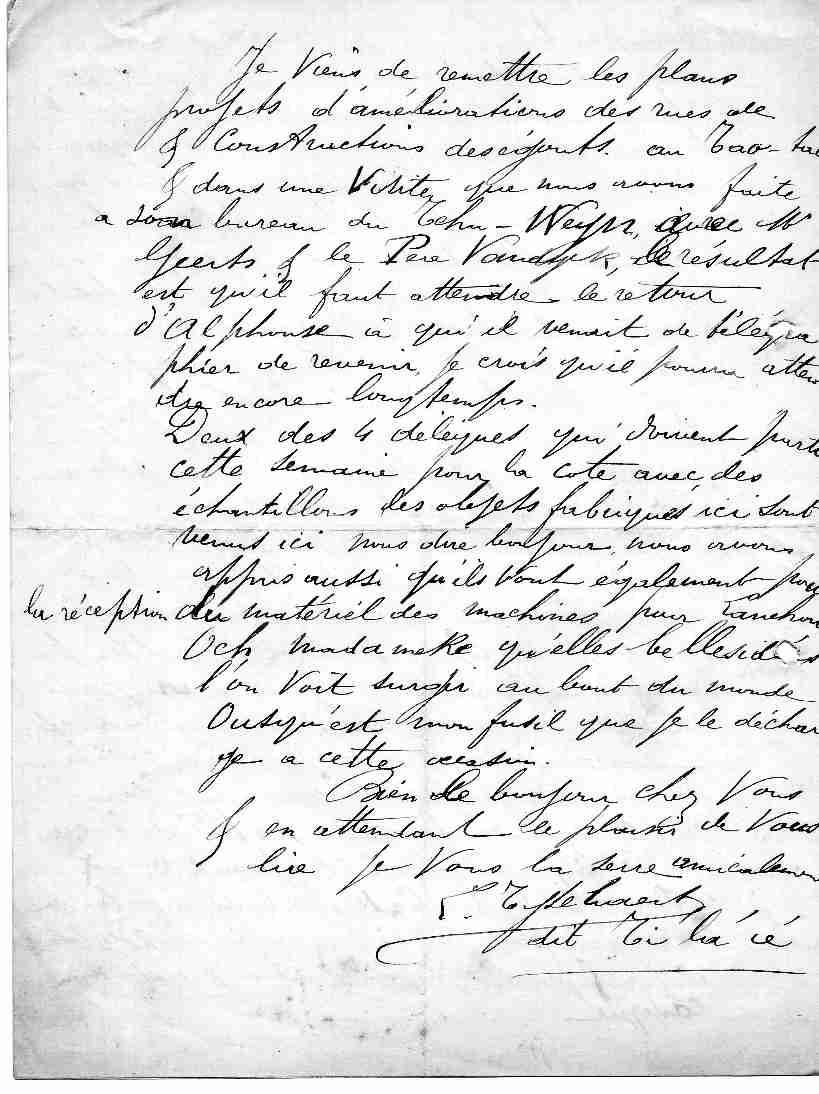 Je Viens de remettre les plans
projets d'améliorations des rues de
& Constructions des égouts. au Tao-tai
& dans une Visite, que nous avons faite
a son bureau du Tchu-Weyn, avec Mr
Geerts & le Père Vandyk, le résultat
est qu'il faut attendre le retour
d'Alphonse à qu'il venait de télégra
phier de revenir, je crois qu'il pourra atten
dre encore longtemps.
Deux des 4 délégues qui doivent parti
cette semaine pour la cote avec des
échantillons des objets fabriqués ici sont
venus ici nous dire bonjour, nous avons
appris aussi qu'ils vont également pour
la réception du matériel des machines pour Lanchow
Och madameke qu'elles belles idées
l'on Voit surgir au bout du monde
Ousqu'est mon fusil que je le déchar
ge a cette occasion.
Bien le bonjour chez Vous
& en attendant le plaisir de Vous
lire je Vous la serre amicalement
dit Ti ha cé